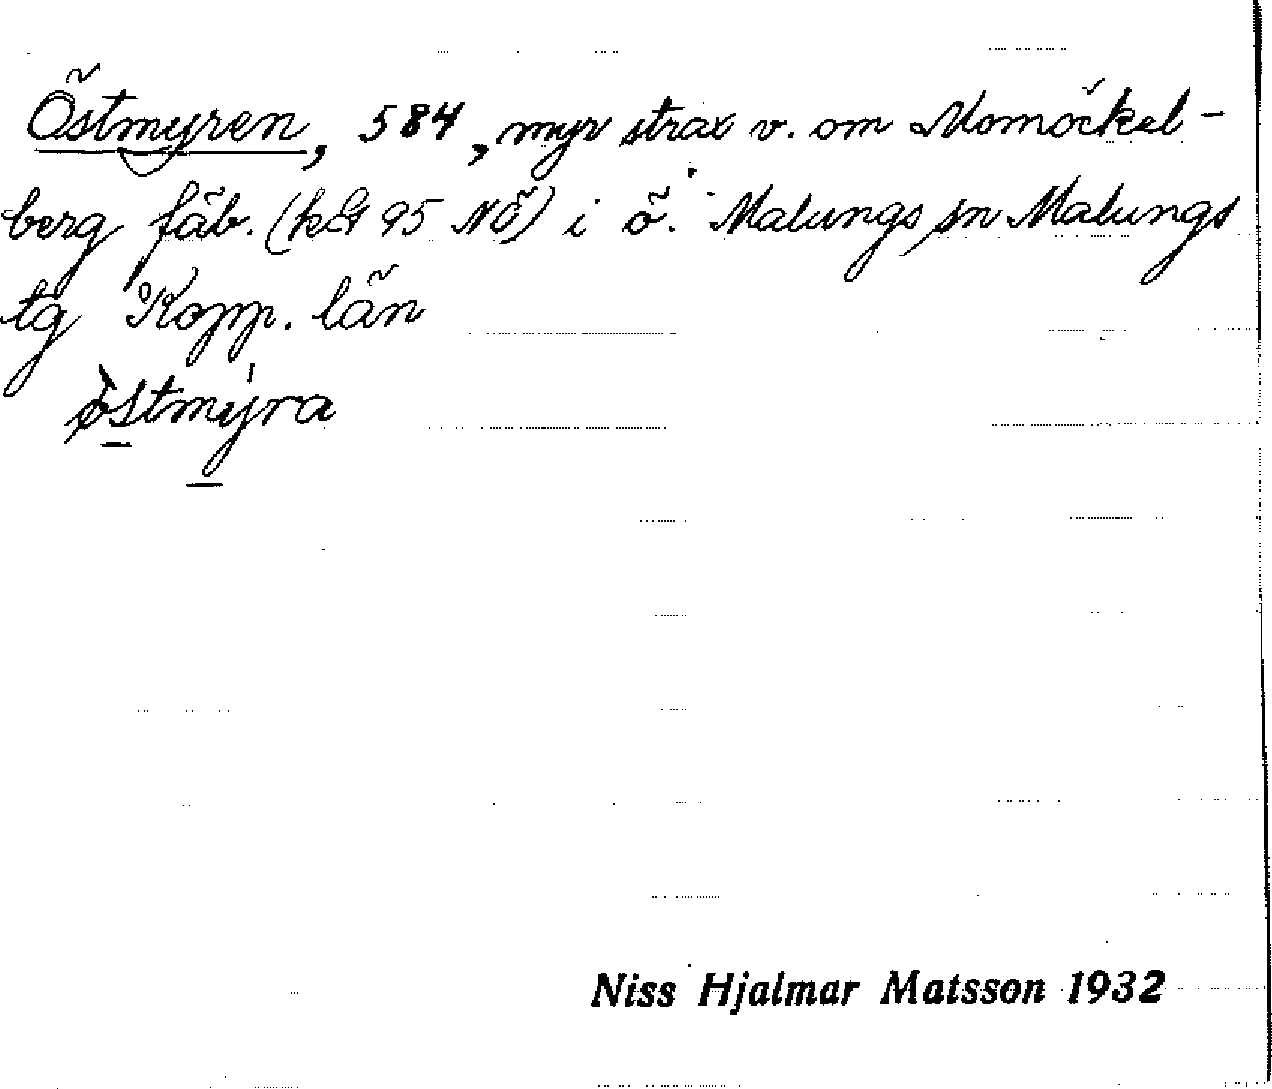 Östmyren, 584, myr strax v. om Momöckel-
berg fäb. (kbl 95 NÖ) i ö. Malungs sn Malungs
tg Kopp. län
ø̀stmýra
Niss Hjalmar Matsson 1932